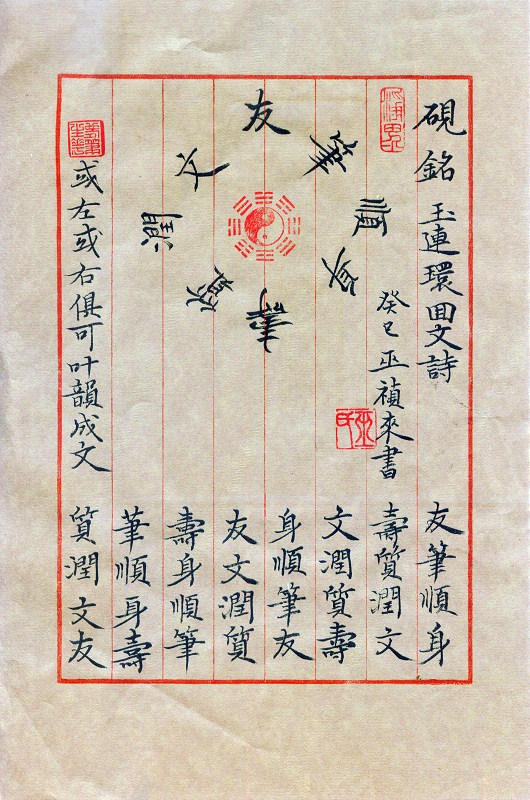 硯銘 玉連環囬文詩
癸巳 巫禎來書
友筆順身壽質潤文
或左或右俱可叶韻成文
友筆順身
壽質潤文
文潤質壽
身順筆友
友文潤質
壽身順筆
筆順身壽
質潤文友